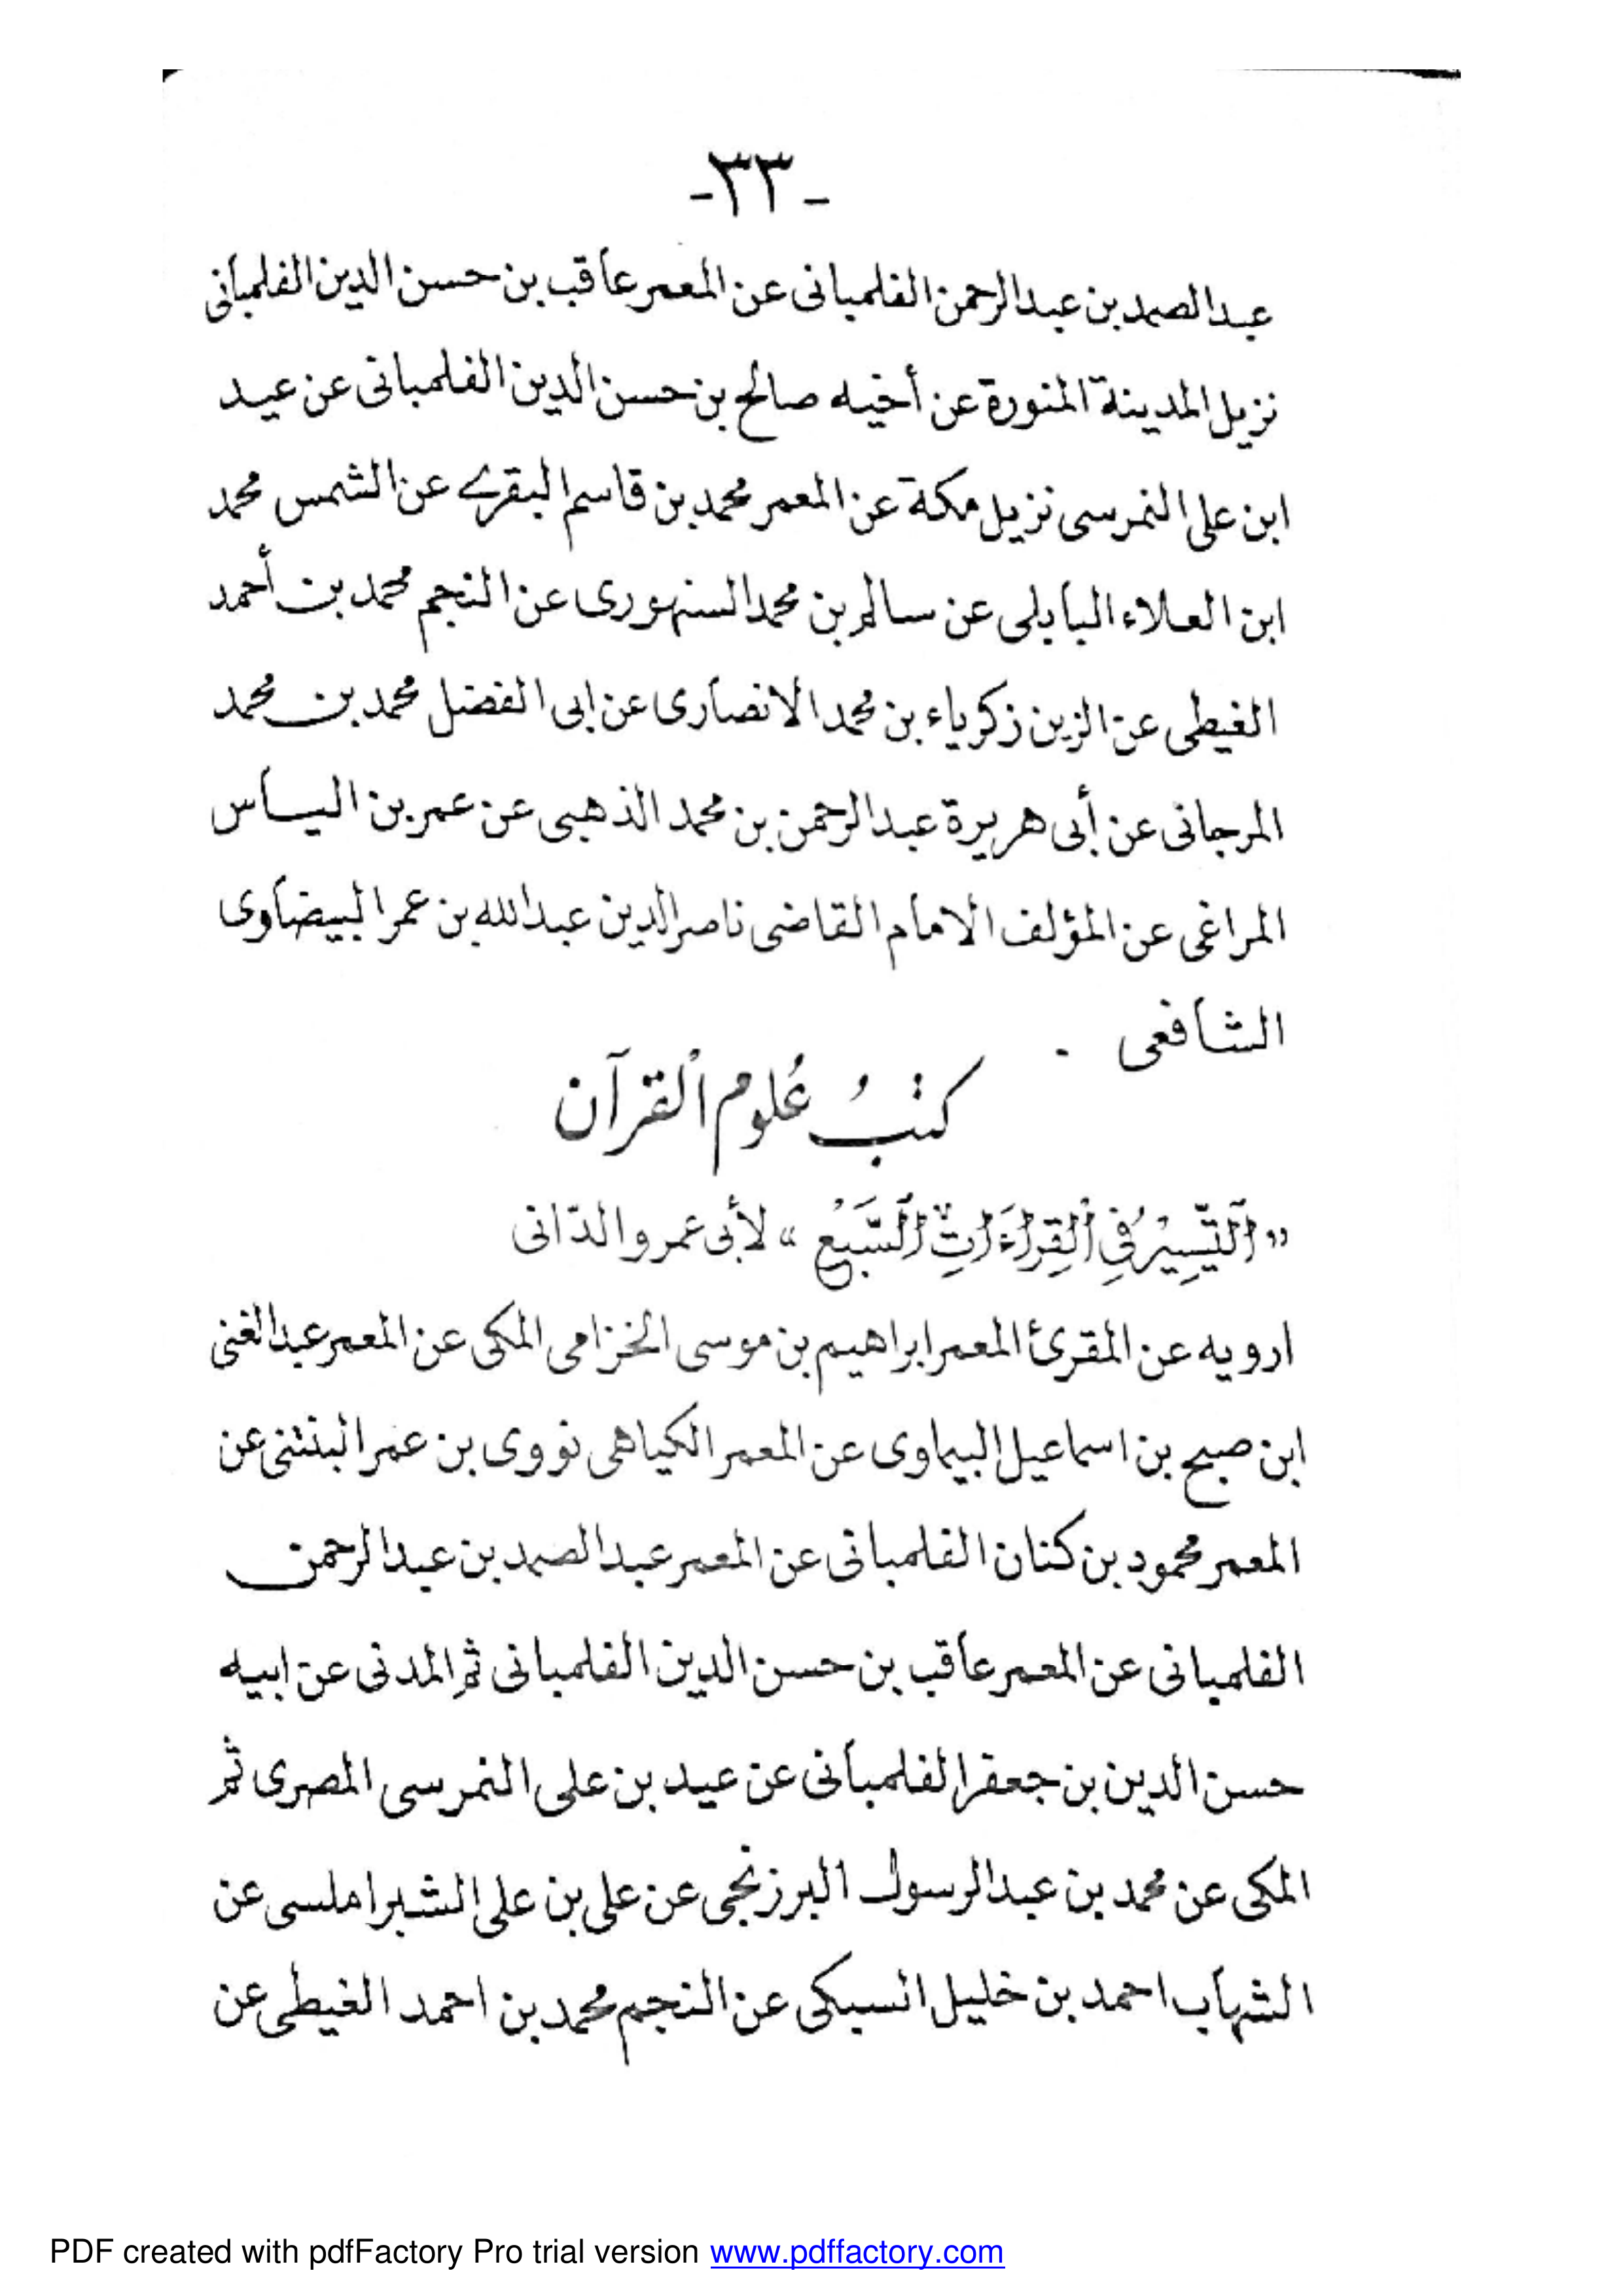 -٣٣-
عبدالصمد بن عبدالرحمن الفلمبانى عن المعمر عاقب بن حسن الدين الفلمبانى
نزيل المدينة المنورة عن أخيه صالح بن حسن الدين الفلمبانى عن عيد
ابن على النمرسى نزيل مكة عن المعمر محمد بن قاسم البقرى عن الشمس محمد
ابن العلاء البابلى عن سالم بن محمد السنهورى عن النجم محمد بن أحمد
الغيطى عن الزين زكرياء بن محمد الانصارى عن ابى الفضل محمد بن محمد
المرجانى عن أبى هريرة عبدالرحمن بن محمد الذهبى عن عمر بن الياس
المراغى عن المؤلف الامام القاضى ناصر الدين عبدالله بن عمر البيضاوى
الشافعى .
كتبُ عُلوم الْقرآن
« اَلتَّيْسِيْرُ فِي الْقِرَاءَاتِ السَّبْعِ » لأبى عمرو الدّانى
ارويه عن المقرئ المعمر ابراهيم بن موسى الخزامى المكى عن المعمر عبدالغنى
ابن صبح بن اسماعيل البيماوى عن المعمر الكياهى نووى بن عمر البنتنى عن
المعمر محمود بن كنان الفلمبانى عن المعمر عبد الصمد بن عبدالرحمن
الفلمبانى عن المعمر عاقب بن حسن الدين الفلمبانى ثم المدنى عن ابيه
حسن الدين بن جعفر الفلمبانى عن عيد بن على النمرسى المصرى ثم
المكى عن محمد بن عبدالرسول البرزنجى عن على بن على الشبراملسى عن
الشهاب احمد بن خليل السبكى عن النجم محمد بن احمد الغيطى عن
PDF created with pdfFactory Pro trial version www.pdffactory.com